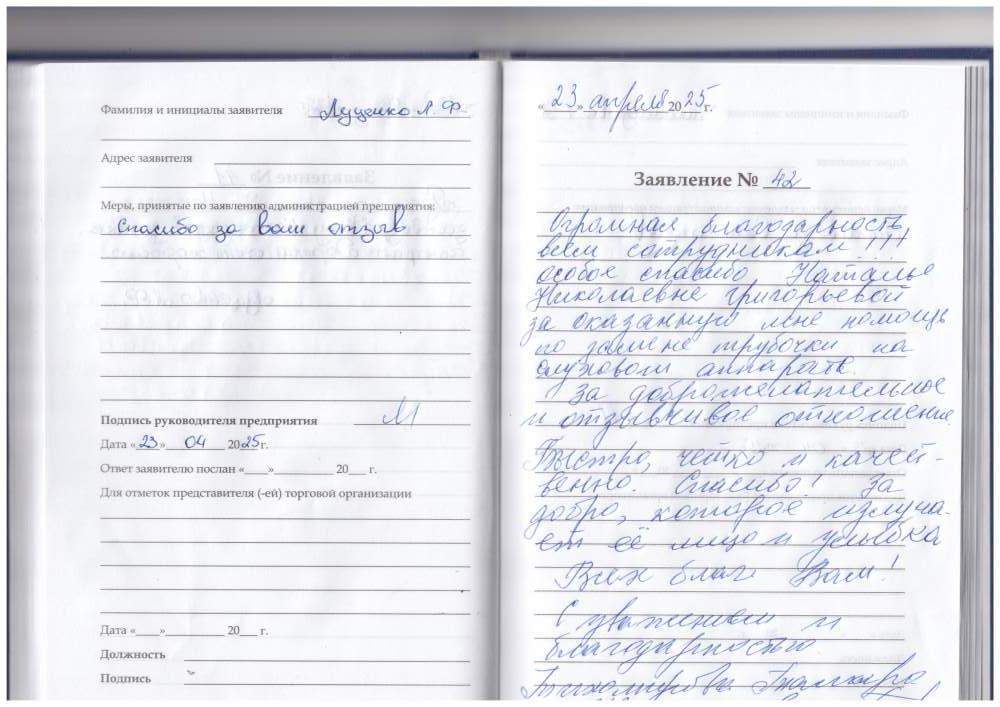 Фамилия и инициалы заявителя Луценко Л. Ф.
Адрес заявителя
Меры, принятые по заявлению администрацией предприятия:
Спасибо за ваш отзыв
Подпись руководителя предприятия
Дата «23» 04 2025г.
Ответ заявителю послан «___»__________ 20___ г.
Для отметок представителя (-ей) торговой организации
Дата «____»__________ 20___ г.
Должность
Подпись
«23» апреля 2025г.
Заявление № 42
Огромная благодарность
всем сотрудникам!!!
особое спасибо Наталье
Николаевне Григорьевой
за оказанную мне помощь
по замене трубочки на
слуховом аппарате.
За доброжелательное
и отзывчивое отношение.
Быстро, чётко и качест-
венно. Спасибо! За
добро, которое излуча-
ет её лицо и улыбка
Всех благ Вам!
С уважением и
благодарностью
Тихомирова